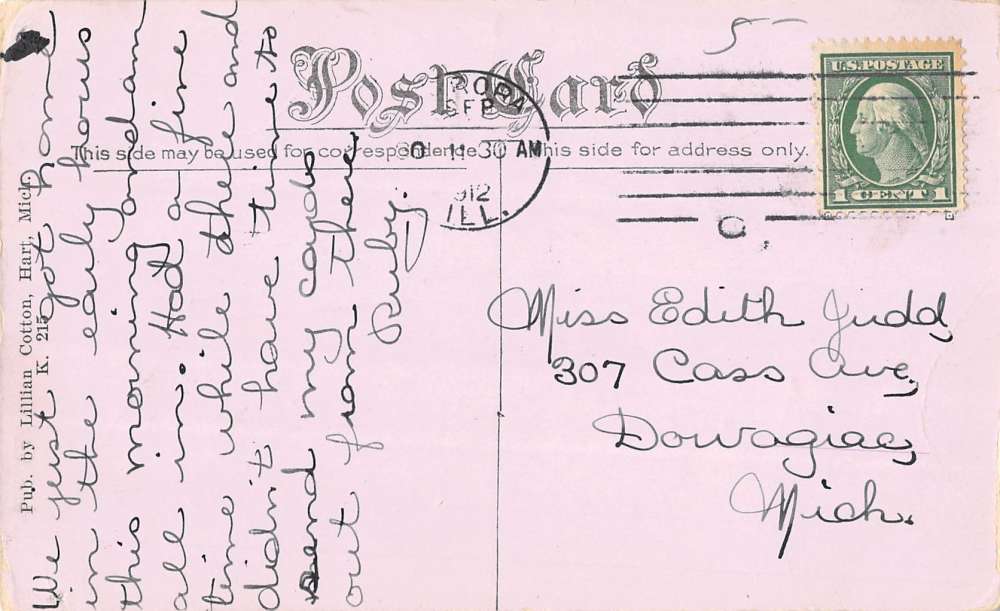 Post Card
This side may be used for correspondence
This side for address only.
U.S. POSTAGE
1 CENT 1
RORA
SEP
0 11 30 AM
1912
ILL.
5
Pub. by Lillian Cotton, Hart, Mich.
K. 215
We just got home
in the early hours
this morning and am
all in. Had a fine
time while there and
didn't have time to
send my cards
out from there.
Ruby.
Miss Edith Judd,
307 Cass Ave,
Dowagiac,
Mich.